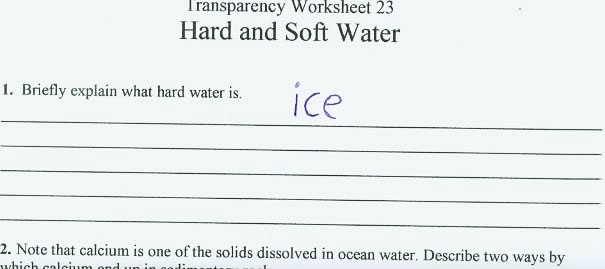 Transparency Worksheet 23
Hard and Soft Water
1. Briefly explain what hard water is.
ice
2. Note that calcium is one of the solids dissolved in ocean water. Describe two ways by
which calcium end up in